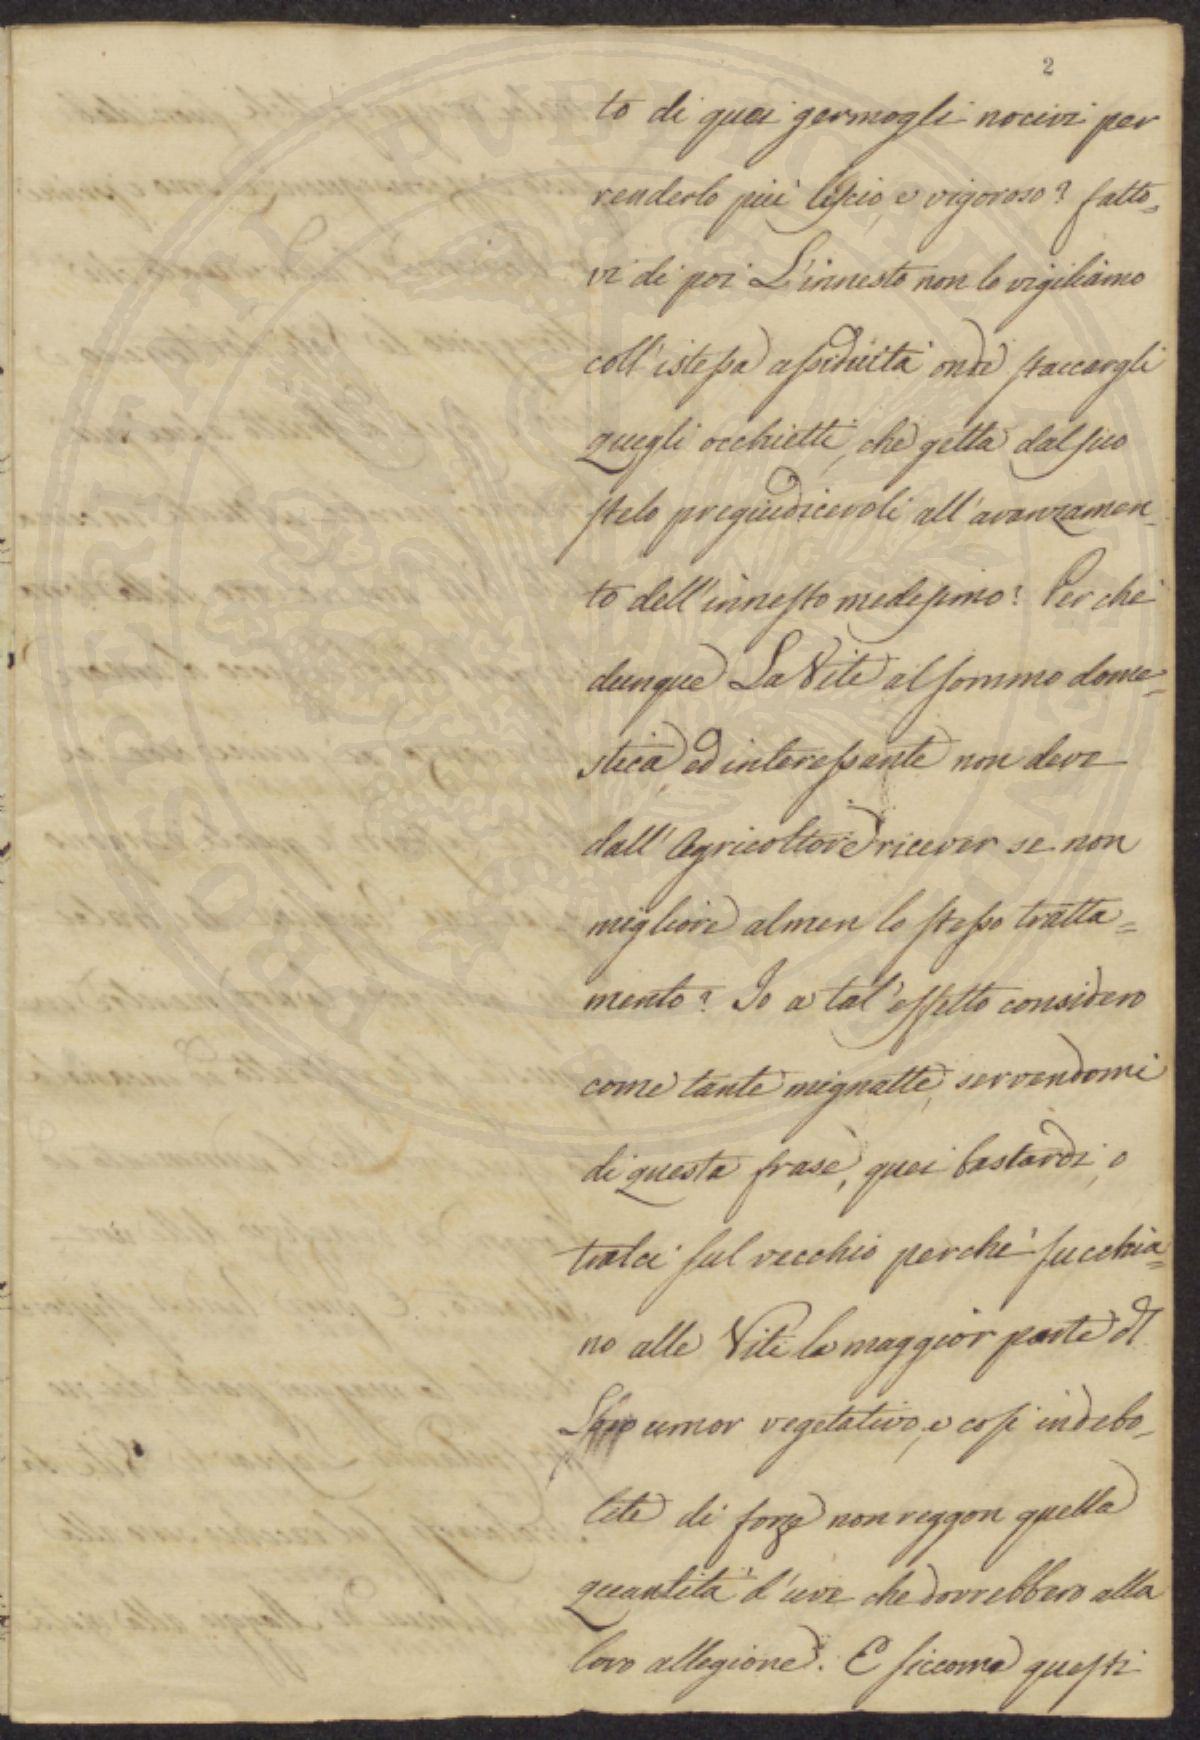 2
to di quei germogli nocivi per
renderlo più liscio, e vigoroso? fatto=
vi di poi L'innesto non lo vigiliamo
coll'istessa assiduità onde staccargli
quegli occhietti, che getta dal suo
stelo pregiudicevoli all'avanzamen=
to dell'innesto medesimo? Perchè
dunque La Vite al sommo dome=
stica, ed interessante non deve
dall'Agricoltore ricever se non
migliore almen lo stesso tratta=
mento? Io a tal'effetto considero
come tante mignatte, servendomi
di questa frase, quei bastardi, o
tralci sul vecchio perchè succhia=
no alle Vite la maggior parte dl
umor vegetativo, e così indebo=
lite di forze non reggon quella
quantità d'uve che dovrebbero alla
loro allegione. E siccome questi